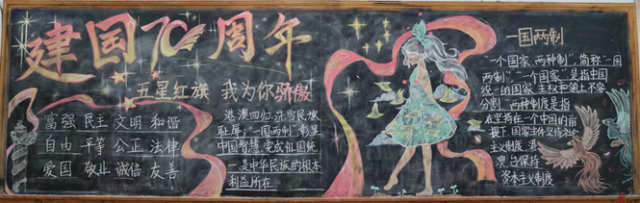 建国70周年
五星红旗 我为你骄傲
富强 民主 文明 和谐
自由 平等 公正 法律
爱国 敬业 诚信 友善
港澳四归,洗雪民族
耻辱;"一国两制"彰显
中国智慧,变成祖国统
一是中华民族的根本
利益所在
一国两制
"一个国家、两种制",简称"一国
两制"。"一个国家"是指中国
统一的国家,主权和领土不容
分割。两种制度是指
在坚持在一个中国的前
提下,国家主体坚持社会
主义制度,港
澳台保持
资本主义制度